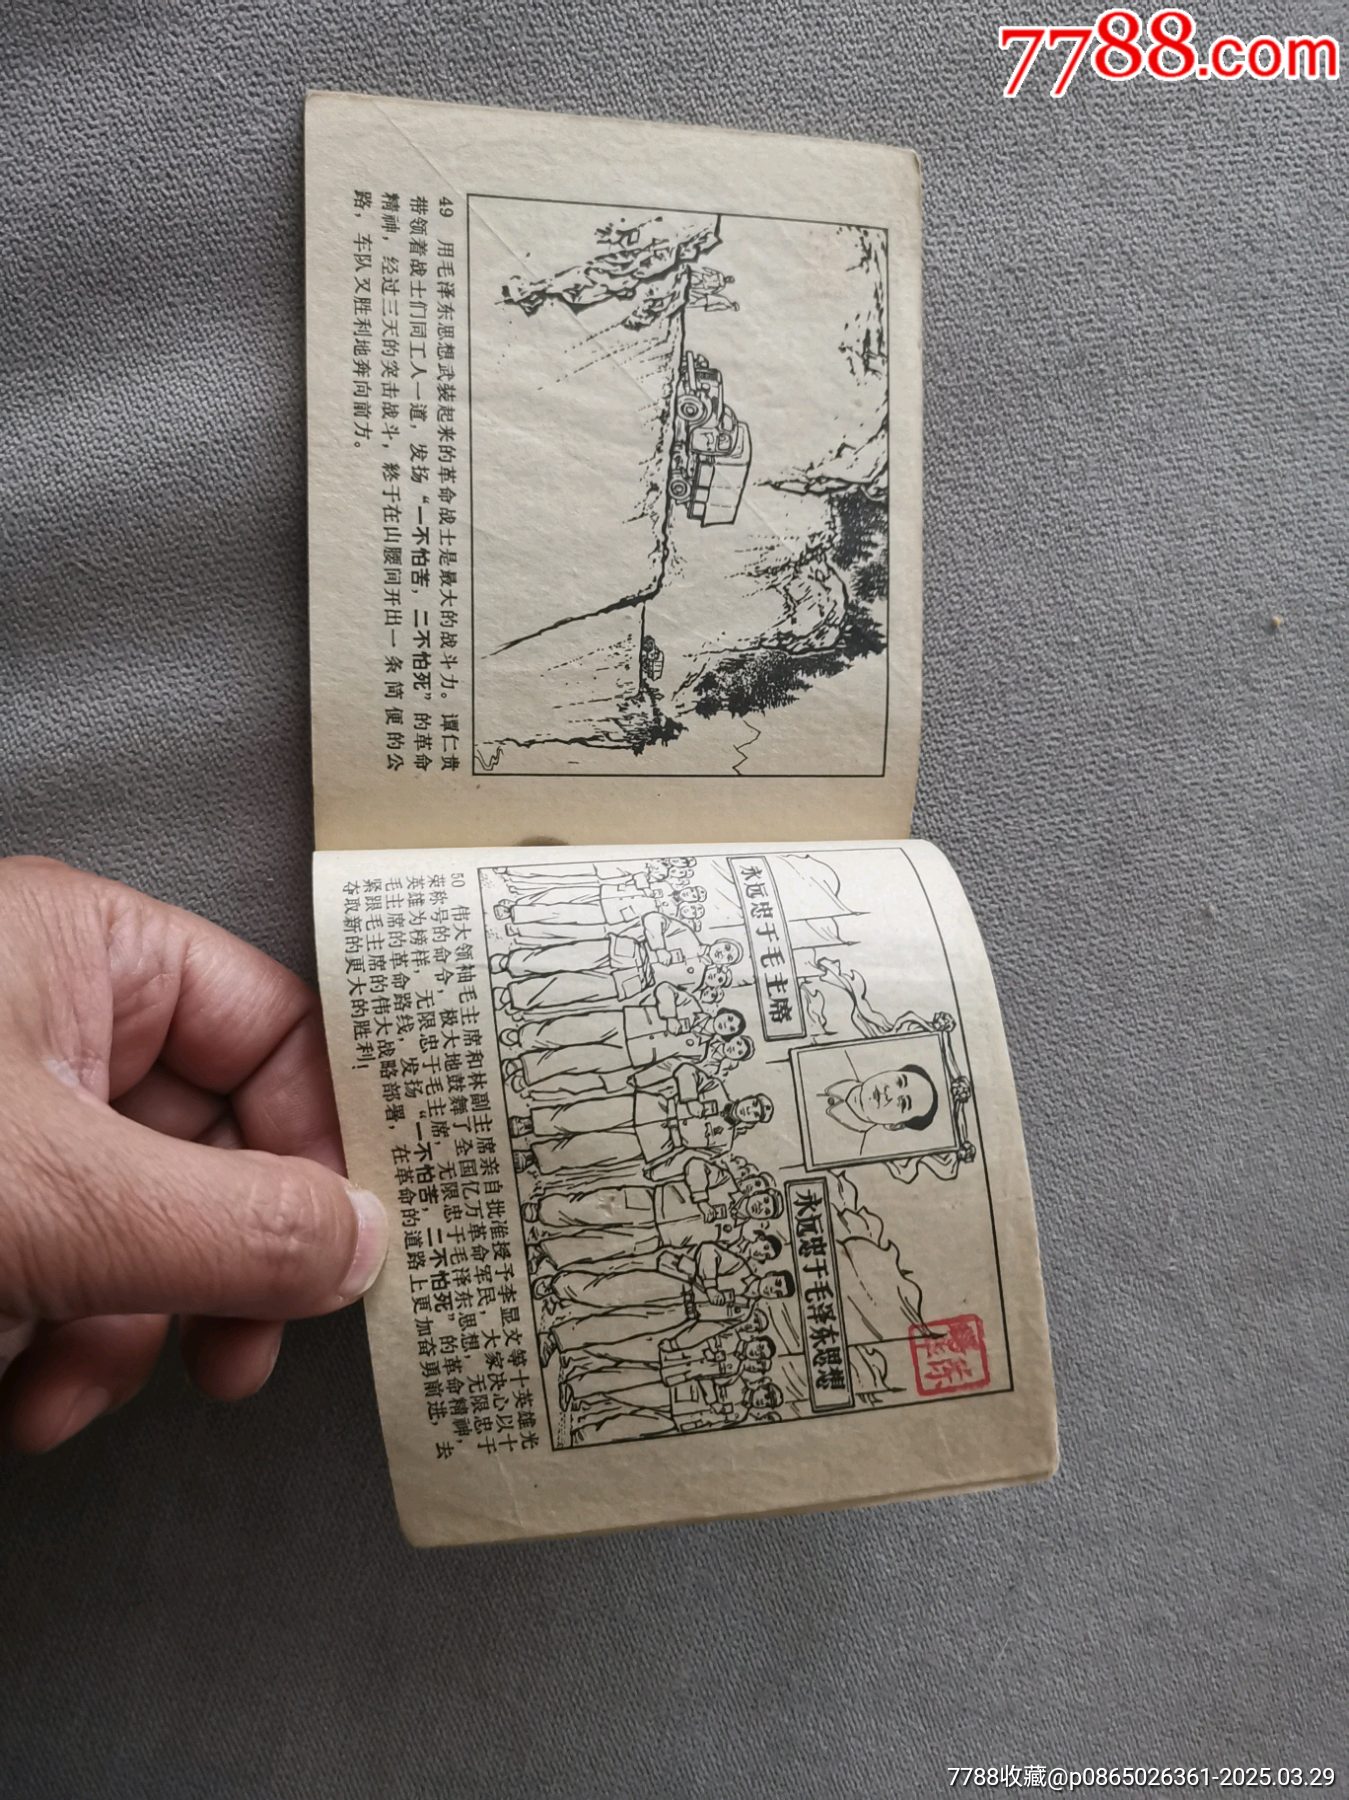 7788.com
49 用毛泽东思想武装起来的革命战士是最大的战斗力。谭仁贵
带领着战士们同工人一道，发扬“一不怕苦，二不怕死”的革命
精神，经过三天的突击战斗，终于在山腰间开出一条简便的公
路，车队又胜利地奔向前方。
永远忠于毛主席
永远忠于毛泽东思想
50 伟大领袖毛主席和林副主席亲自批准授予李显文等十英雄光
荣称号的命令，极大地鼓舞了全国亿万革命军民，大家决心以十
英雄为榜样，无限忠于毛主席，无限忠于毛泽东思想，无限忠于
毛主席的革命路线，发扬“一不怕苦，二不怕死”的革命精神，
紧跟毛主席的伟大战略部署，在革命的道路上更加奋勇前进，去
夺取新的更大的胜利！
7788收藏@p0865026361-2025.03.29